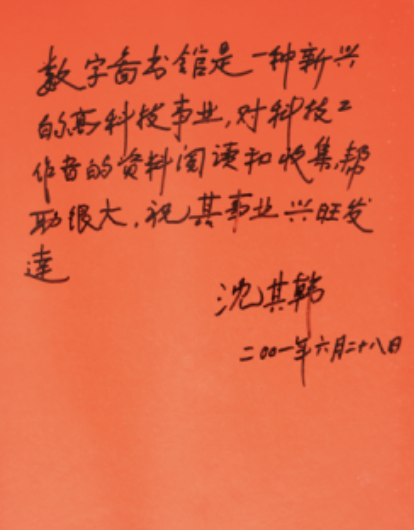 数字图书馆是一种新兴
的高科技事业,对科技工
作者的资料阅读和收集帮
助很大,祝其事业兴旺发
达
沈其韩
二〇〇一年六月二十八日